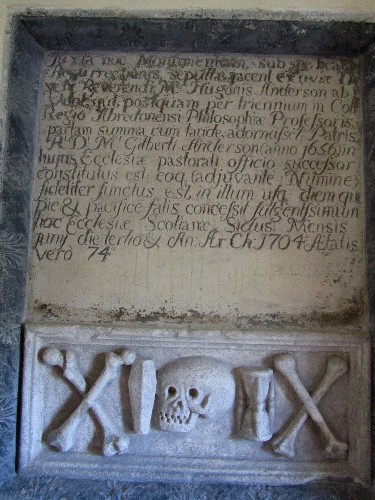 Juxta hoc Monumentum, sub spe beatæ
Resurrectionis, sepultæ jacent exuviæ D
Reverendi Mri Hugonis Anderson ab
qui, postquam per triennium in Coll
Regio Abredonensi Philosophiæ Professoris,
partem summa cum laude adornasset, Patris
Di Mri Gilberti Anderson (anno 1656) in
hujus Ecclesiæ pastorali officio successor
constitutus est, eoq (adjuvante Numine)
fideliter functus est, in illum usq diem quo
pie & pacifice fatis concessit fulgentissimum
hoc Ecclesiæ Scoticanæ Sidus Mensis
Junij die tertio & An: Ær. Ch: 1704 Ætatis
vero 74